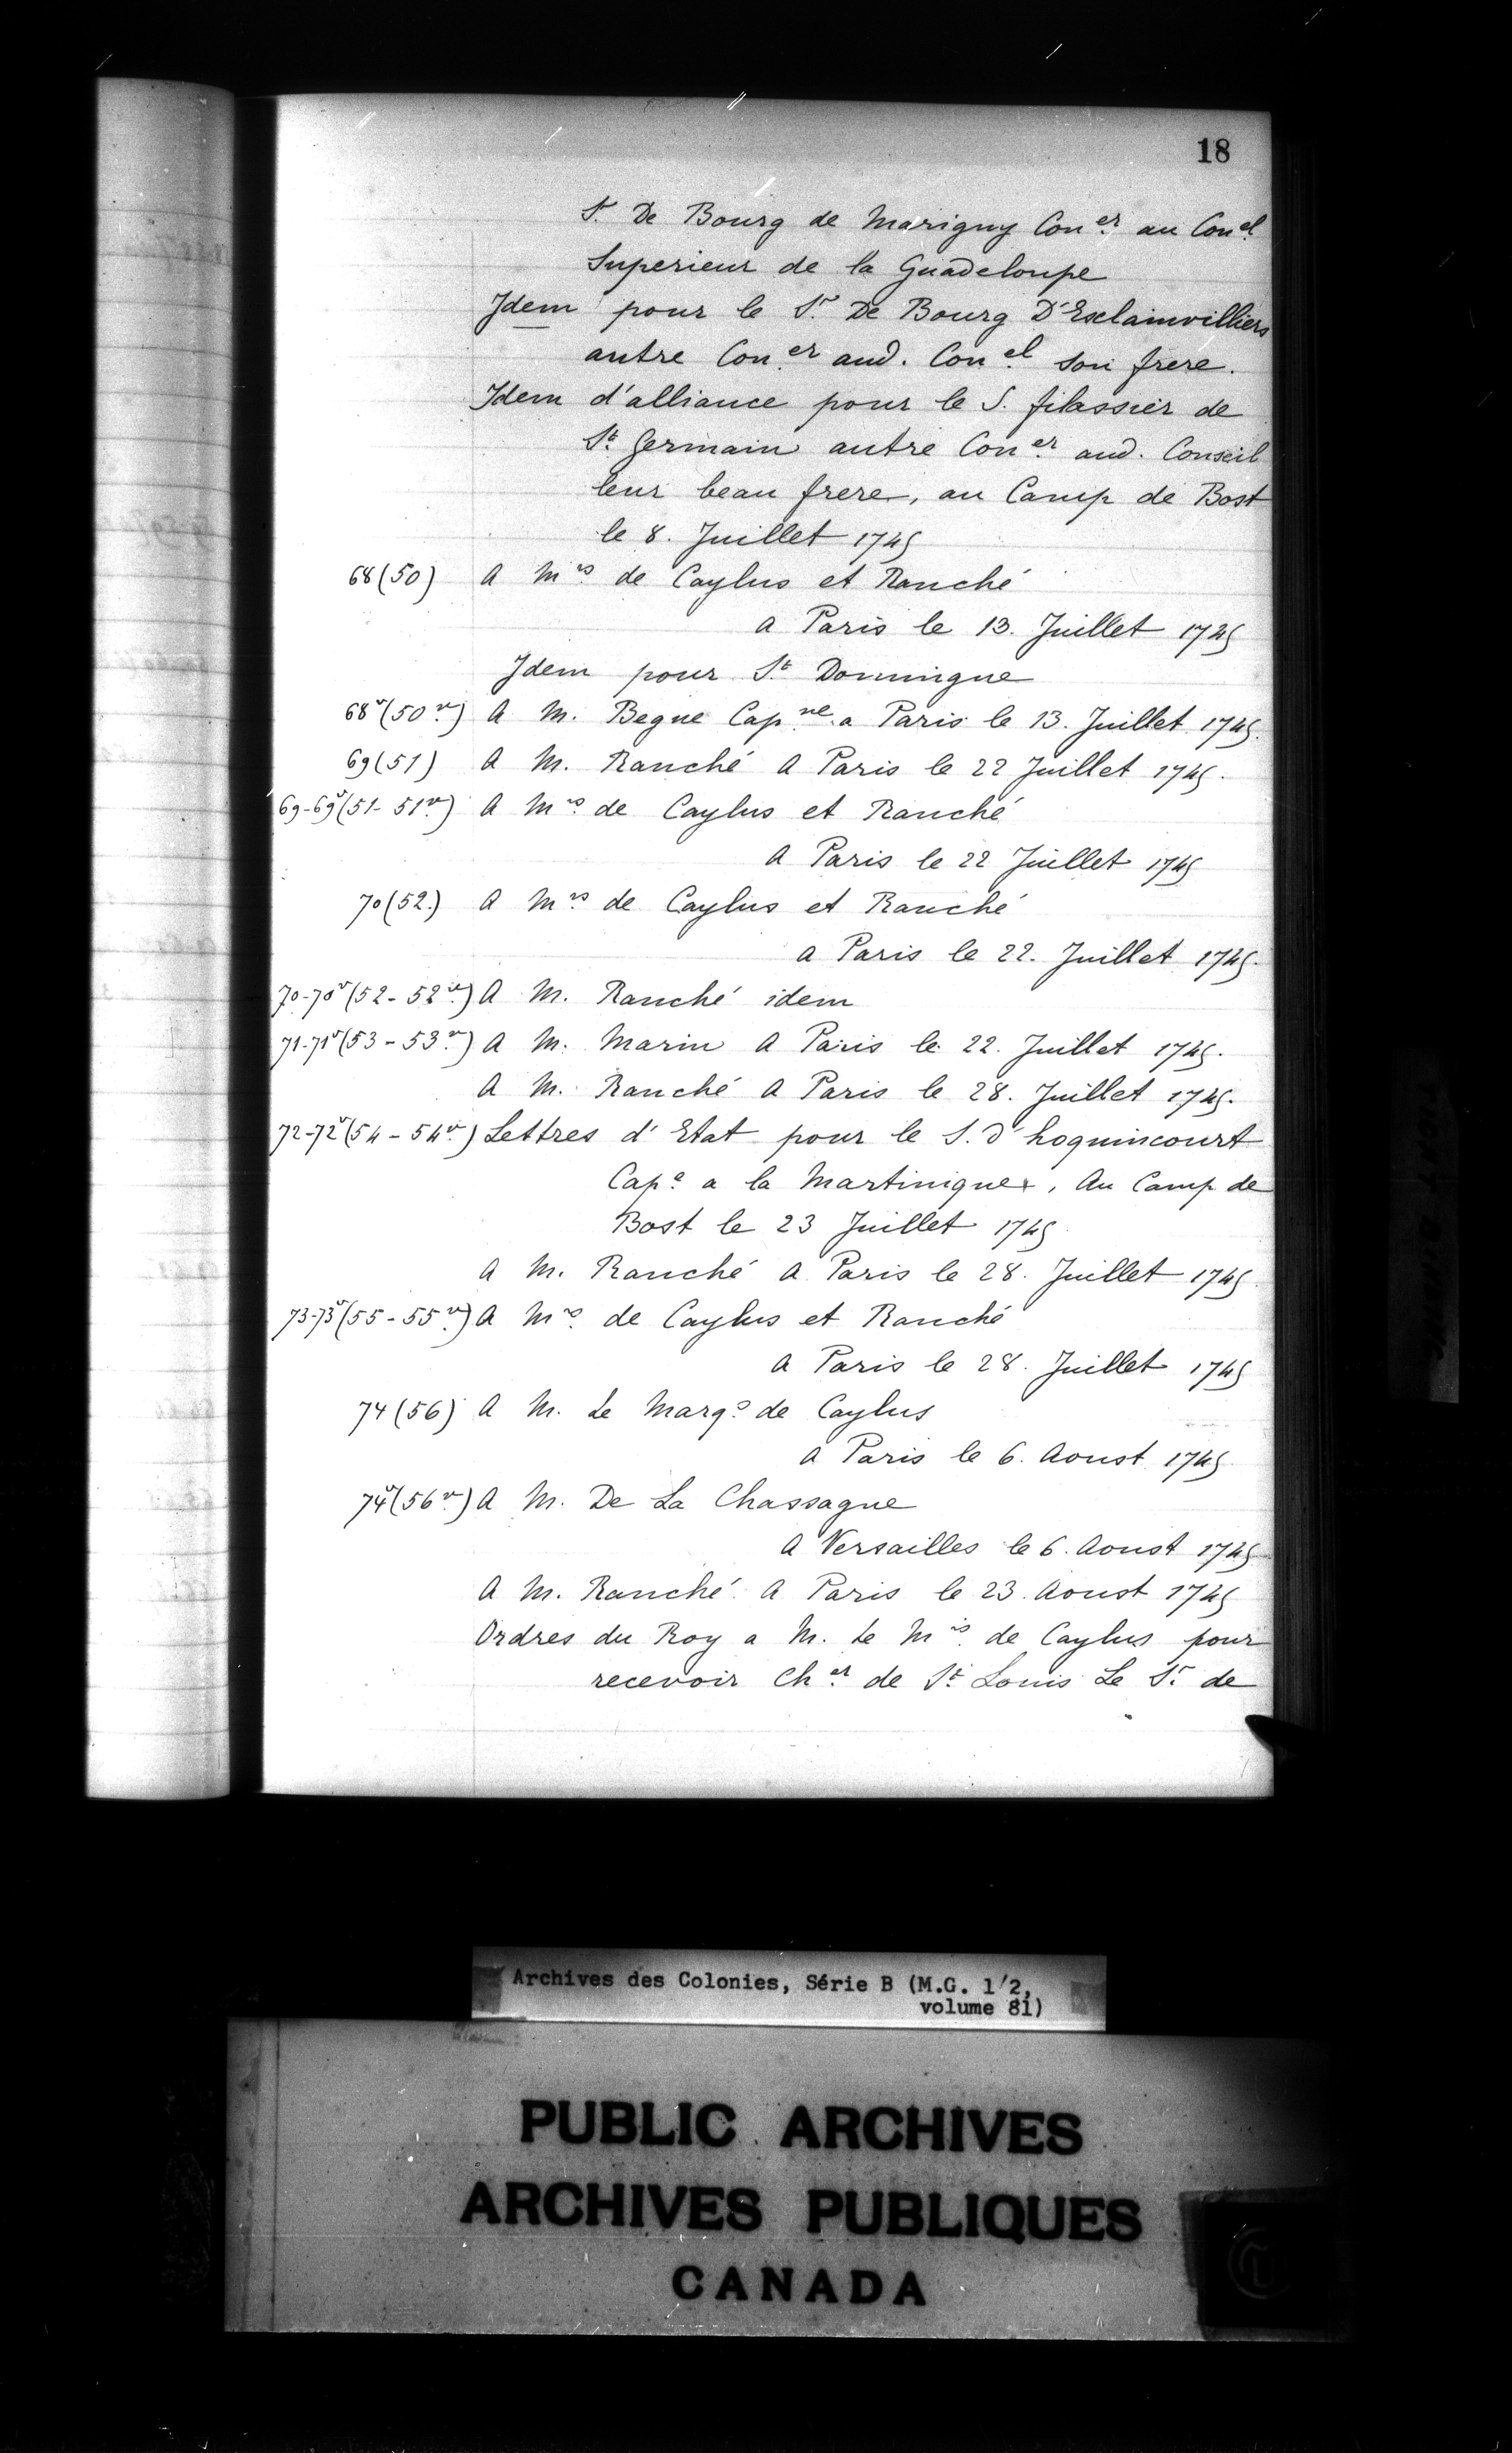 18
Sr. De Bourg de Marigny Coner. au Conel.
Superieur de la Guadeloupe
Idem pour le Sr. De Bourg D'Esclainvilliers
autre Coner. aud. Conel. son frere.
Idem d'alliance pour le S. filassier de
St. Germain autre Coner. aud. Conseil
leur beau frere, au Camp de Bost
le 8. Juillet 1745
68 (50) A Mrs. de Caylus et Ranché
a Paris le 13. Juillet 1745
Idem pour St Domingue
68v (50v.) A M. Begue Capne. a Paris le 13. Juillet 1745.
69 (51) A M. Ranché A Paris le 22 Juillet 1745.
69-69v (51-51v.) A Mrs. de Caylus et Ranché
A Paris le 22 Juillet 1745
70 (52.) A Mrs. de Caylus et Ranché
a Paris le 22. Juillet 1745.
70-70v (52-52v.) A M. Ranché idem
71-71v (53-53v.) A M. Marin A Paris le 22. Juillet 1745.
A M. Ranché A Paris le 28. Juillet 1745.
72-72v (54-54v.) Lettres d'Etat pour le S. d'hoquincourt
Cape. a la Martinique, Au Camp de
Bost le 23 Juillet 1745
A M. Ranché A Paris le 28. Juillet 1745
73-73v (55-55v.) A Mrs. de Caylus et Ranché
a Paris le 28. Juillet 1745
74 (56) A M. Le Margs. de Caylus
a Paris le 6. Aoust 1745
74v (56v.) A M. De La Chassagne
A Versailles le 6. Aoust 1745
A M. Ranché A Paris le 23. Aoust 1745
Ordres du Roy a M. Le Mis. de Caylus pour
recevoir Cher. de St. Louis Le Sr. de
Archives des Colonies, Série B (M.G. 1/2,
volume 81)
PUBLIC ARCHIVES
ARCHIVES PUBLIQUES
CANADA